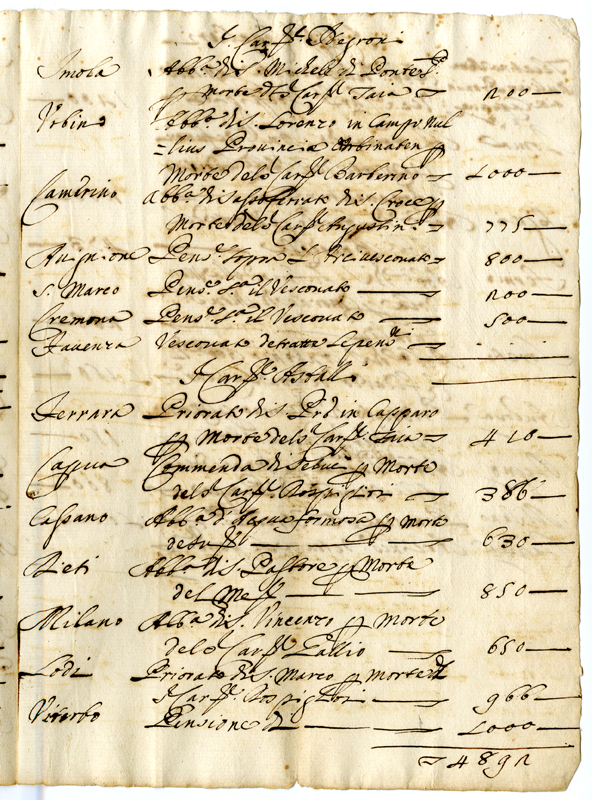 I Car.le Negroni
Imola Abb.a di S. Michele di Ponte
p Morte del Car.l Taia 200
Vrbino Abb.a di S. Lorenzo in Campo Nul
=lius Provincia Vrbinaten p
Morte del s. Car.l Barberino 1000
Camerino Abb.a di Sassoferrato di S. Croce p
Morte del s. Car.l Angustin 775
Auignione Pens.e sopra l'Arciuescouato 800
S. Marco Pens.e S.a il Vescouato 200
Cremona Pens.e S.a il Vescouato 500
Fauenza Vescouato detratte le pens.i
I Car.le Astalli
Ferrara Priorato di S. in Casparo
p Morte del s. Car.l Taia 410
Capua Commenda di p Morte
del s. Car.l Rospigliosi 386
Cassano Abb.a d'Acqua formosa p Morte
630
Rieti Abb.a di S. Pastore p Morte
del 850
Milano Abb.a di S. Vincenzo p Morte
del s. Car.l Gallio 650
Lodi Priorato di S. Marco p Morte d
I Car.l Rospigliosi 966
Viterbo Pensione di 1000
4892